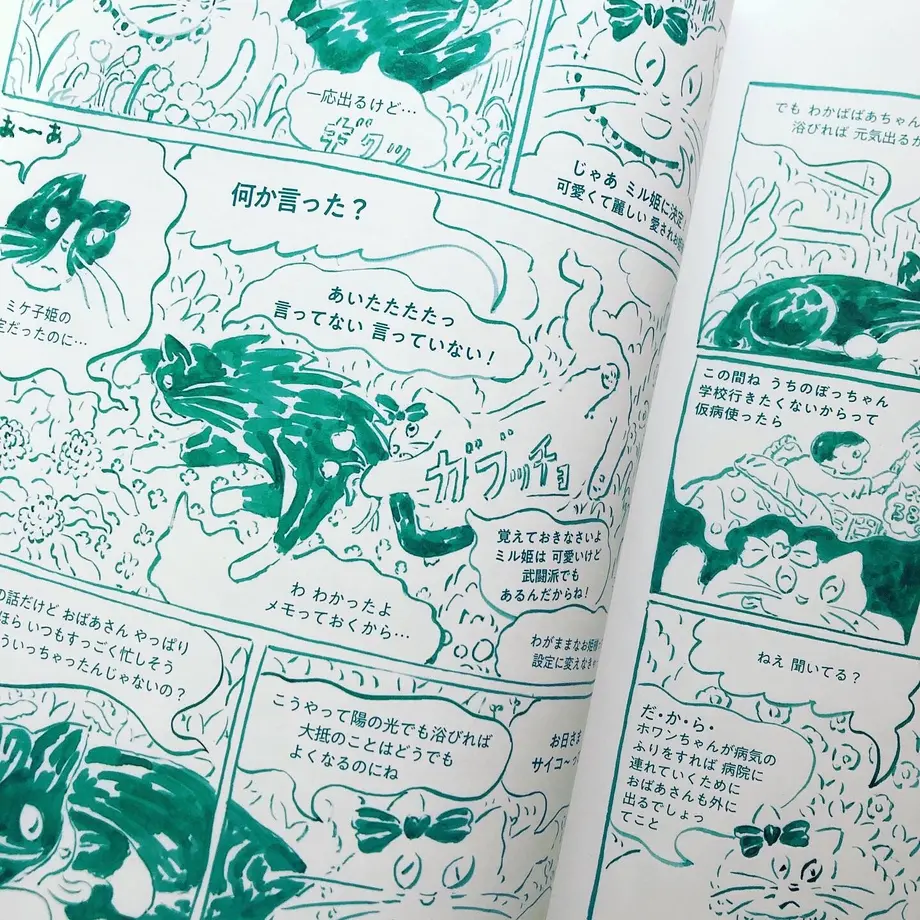 一応出るけど…
ギクッ
じゃあ ミル姫に決定
可愛くて麗しい 愛されお姫
あ〜あ
ミケ子姫の
定だったのに…
何か言った？
あいたたたたっ
言ってない 言っていない！
ガブッチョ
覚えておきなさいよ
ミル姫は 可愛いけど
武闘派でも
あるんだからね！
わ わかったよ
メモっておくから…
わがままなお姫様
設定に変えなきゃ
の話だけど おばあさん やっぱり
ほら いつもすっごく忙しそう
ういっちゃったんじゃないの？
こうやって陽の光でも浴びれば
大抵のことはどうでも
よくなるのにね
お日さま
サイコ〜っ
でも わかばばあちゃん
浴びれば 元気出るか
この間ね うちのぼっちゃん
学校行きたくないからって
仮病使ったら
ねえ 聞いてる？
だ・か・ら・
ホワンちゃんが病気の
ふりをすれば 病院に
連れていくために
おばあさんも外に
出るでしょっ
てこと